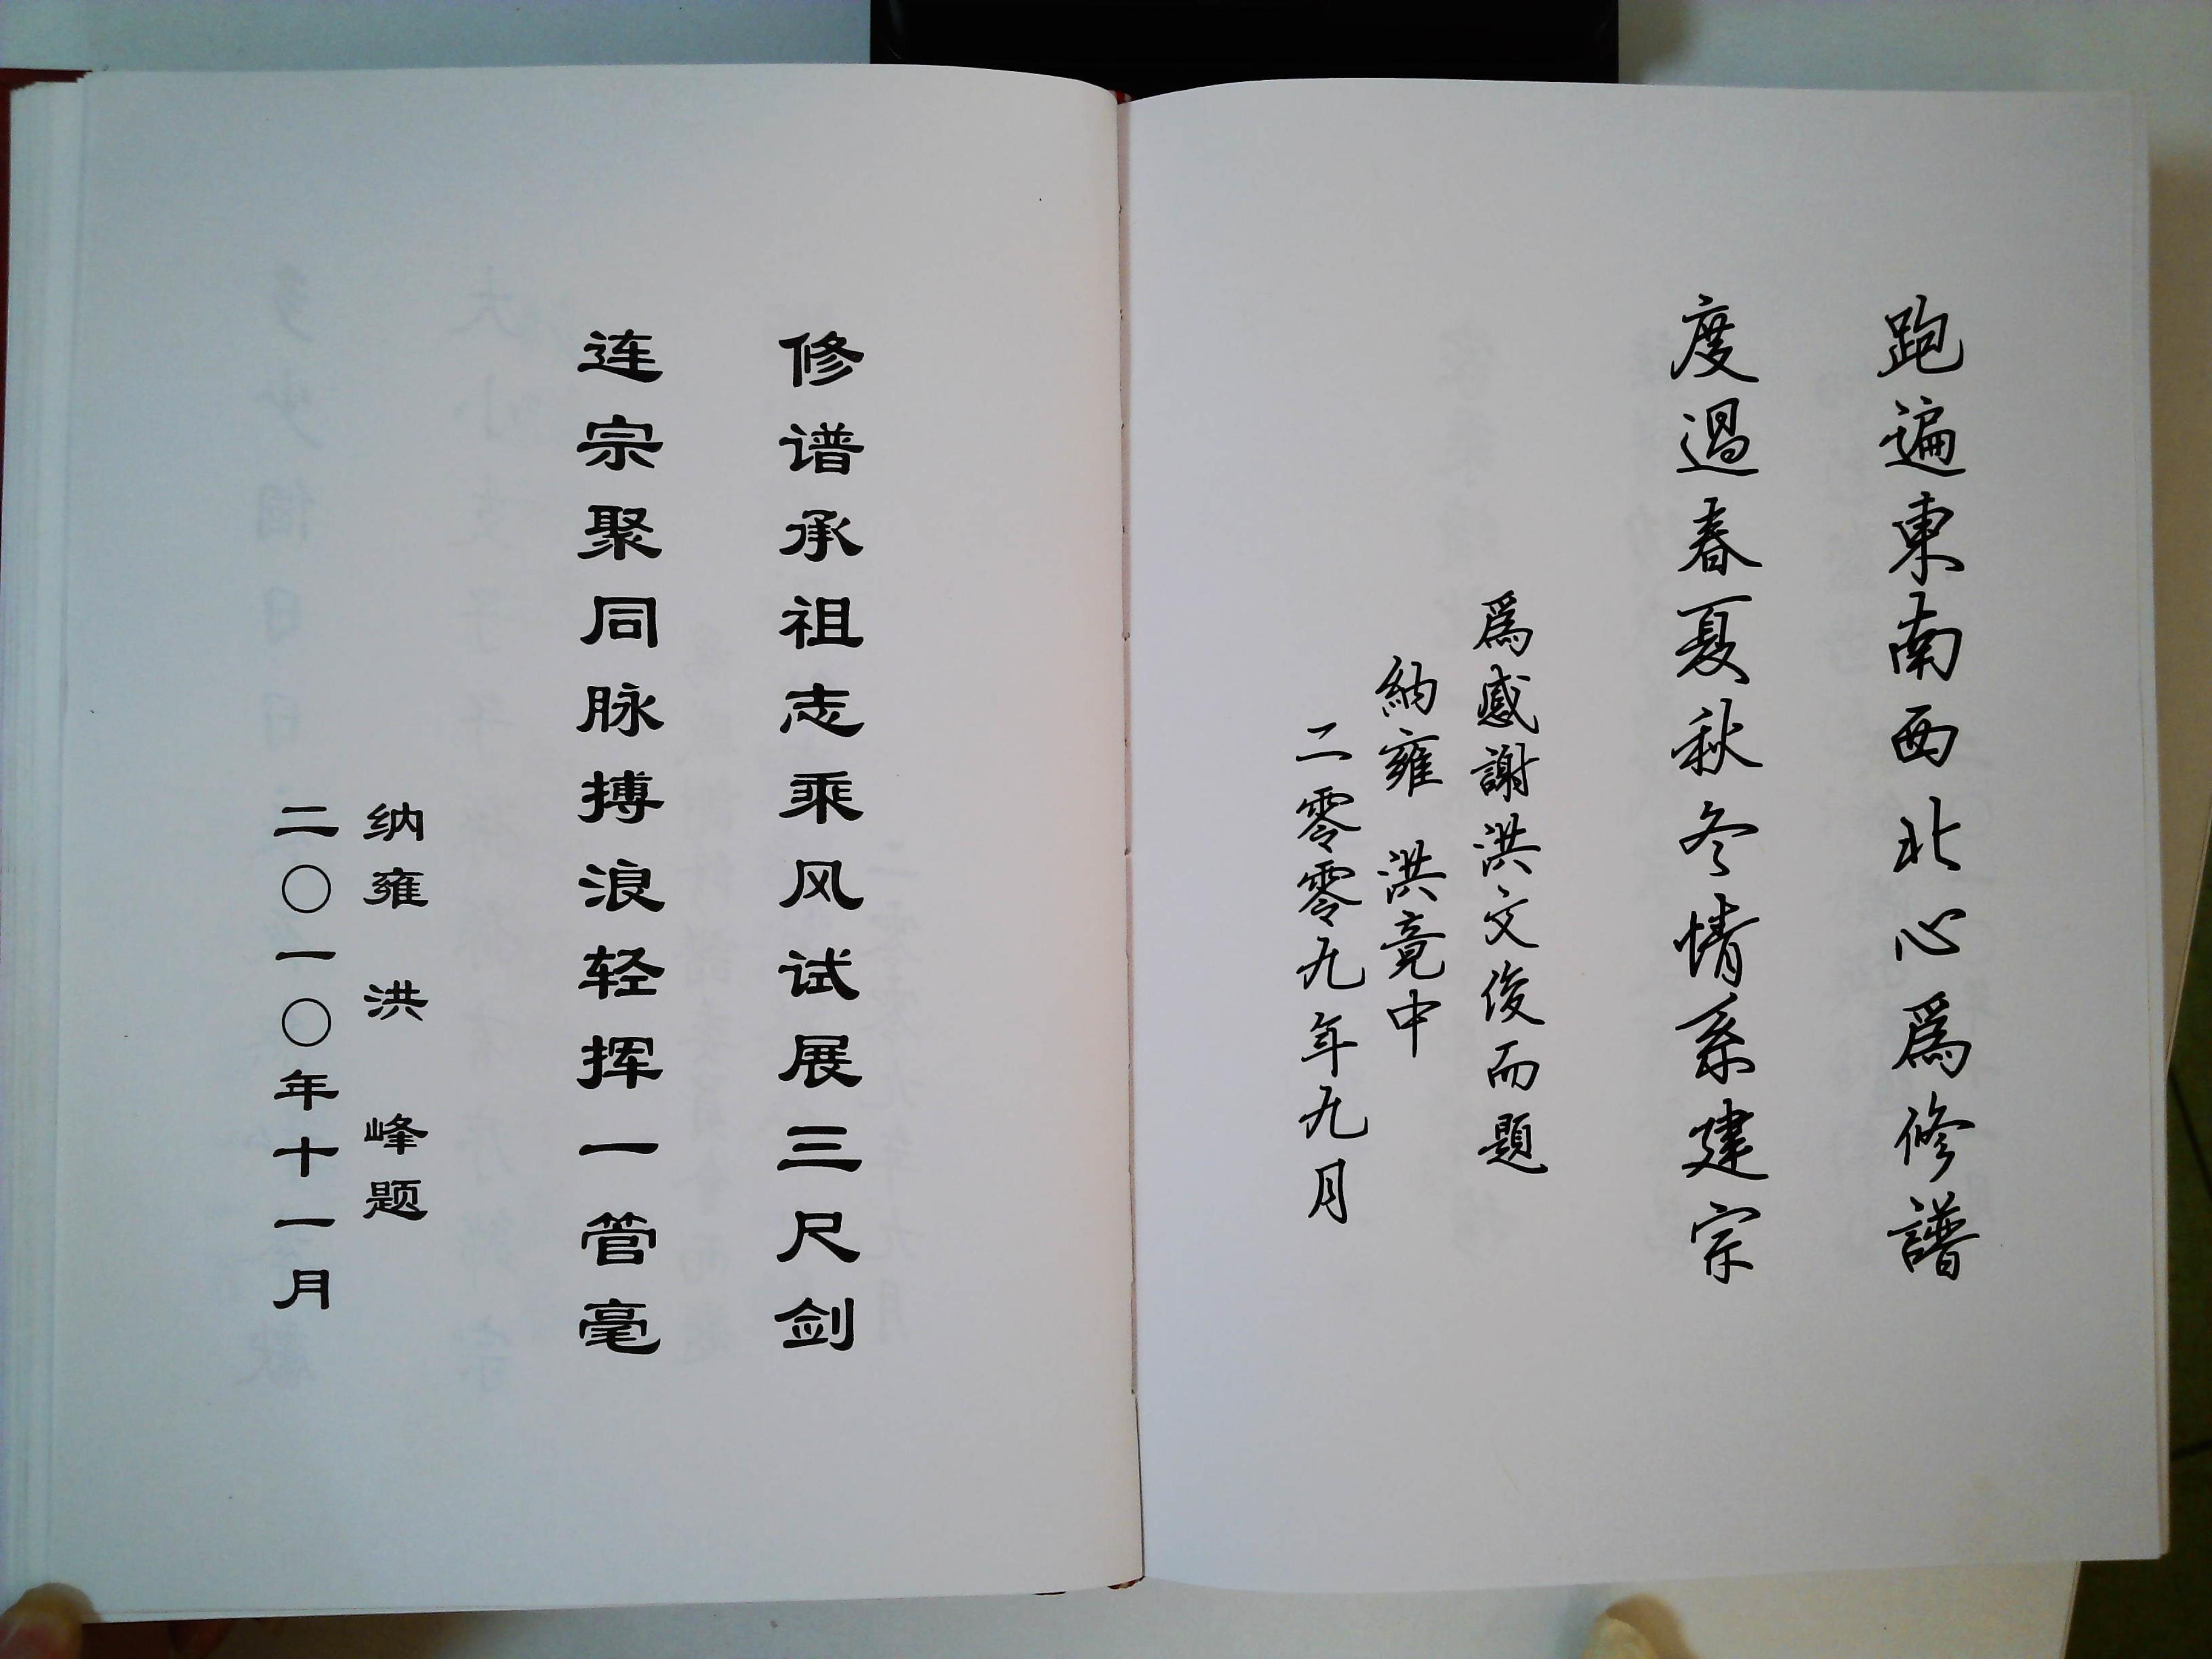 跑遍東南西北心爲修譜
度過春夏秋冬情系建宗
爲感謝洪文俊而題
納雍 洪竟中
二零零九年九月
修谱承祖志乘风试展三尺剑
连宗聚同脉搏浪轻挥一管毫
纳雍 洪 峰题
二〇一〇年十一月